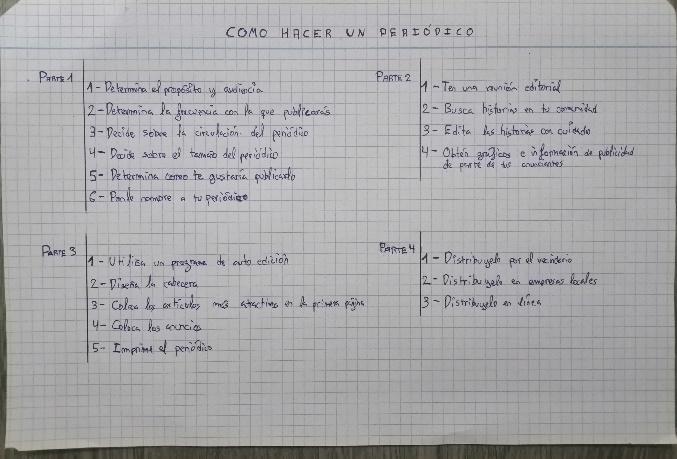 COMO HACER UN PERIÓDICO
PARTE 1
1- Determina el propósito y audiencia
2- Determina la frecuencia con la que publicarás
3- Decide sobre la circulación del periódico
4- Decide sobre el tamaño del periódico
5- Determina como te gustaría publicarlo
6- Ponle nombre a tu periódico
PARTE 2
1- Ten una reunión editorial
2- Busca historias en tu comunidad
3- Edita las historias con cuidado
4- Obtén gráficos e información de publicidad
de parte de tus anunciantes
PARTE 3
1- Utiliza un programa de auto edición
2- Diseña la cabecera
3- Coloca los artículos más atractivos en la primera página
4- Coloca los anuncios
5- Imprime el periódico
PARTE 4
1- Distribuyelo por el vecindario
2- Distribuyelo en empresas locales
3- Distribuyelo en línea